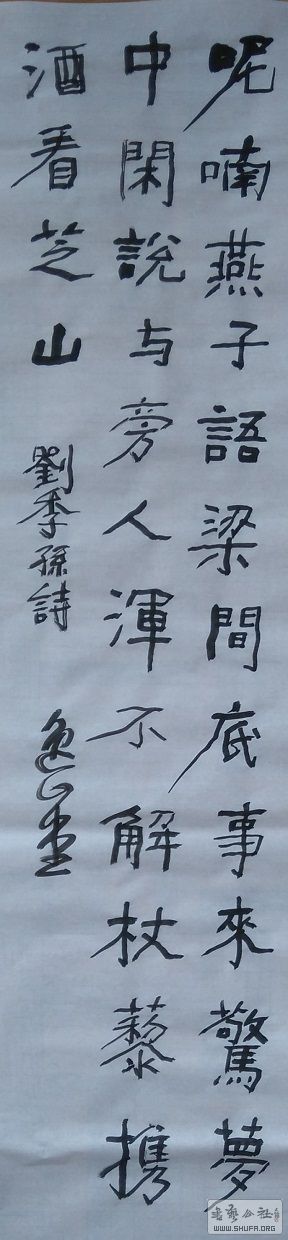 呢喃燕子語梁間底事來驚夢
中閑說与旁人渾不解杖藜携
酒看芝山
劉季孫詩
书艺公社
WWW.SHUFA.ORG